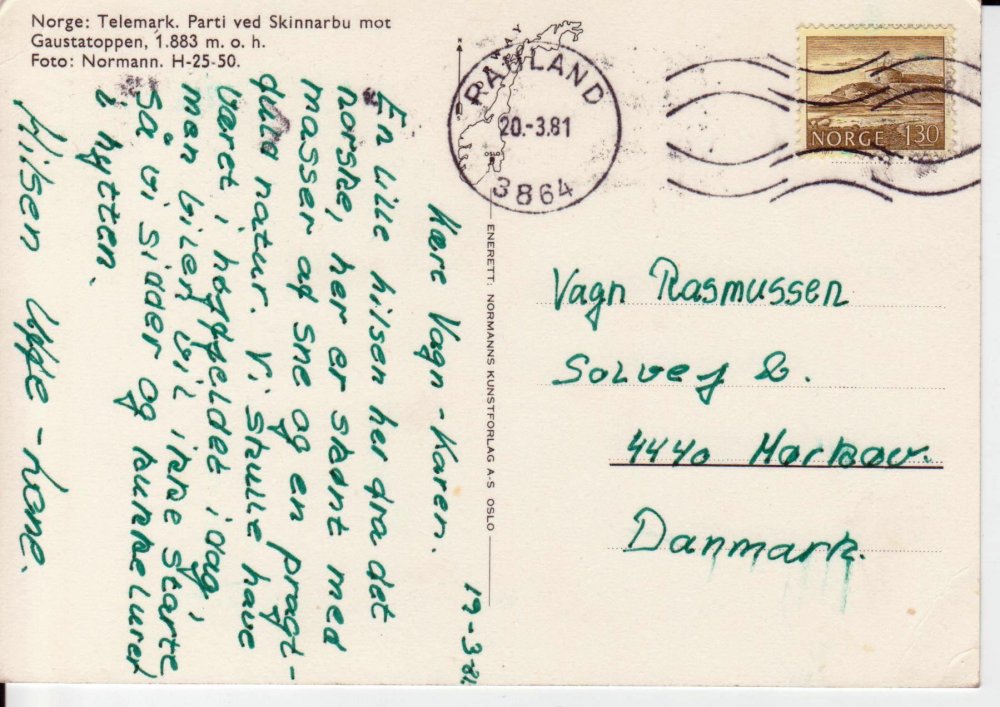 Norge: Telemark. Parti ved Skinnarbu mot
Gaustatoppen, 1.883 m. o. h.
Foto: Normann. H-25-50.
RAULAND
20.-3.81
3864
NORGE 130
OSLO
ENERETT: NORMANNS KUNSTFORLAG A-S OSLO
19-3-81.
Kære Vagn - Karen.
En lille hilsen her fra det
norske, her er skønt med
masser af sne og en pragt-
fuld natur. Vi skulle have
været i højfjeldet idag,
men bilen vil ikke starte
så vi sidder og kukkelurer
i hytten.
Hilsen Uffe - Lone.
Vagn Rasmussen
Solvej 6.
4440 Mørkøv.
Danmark.